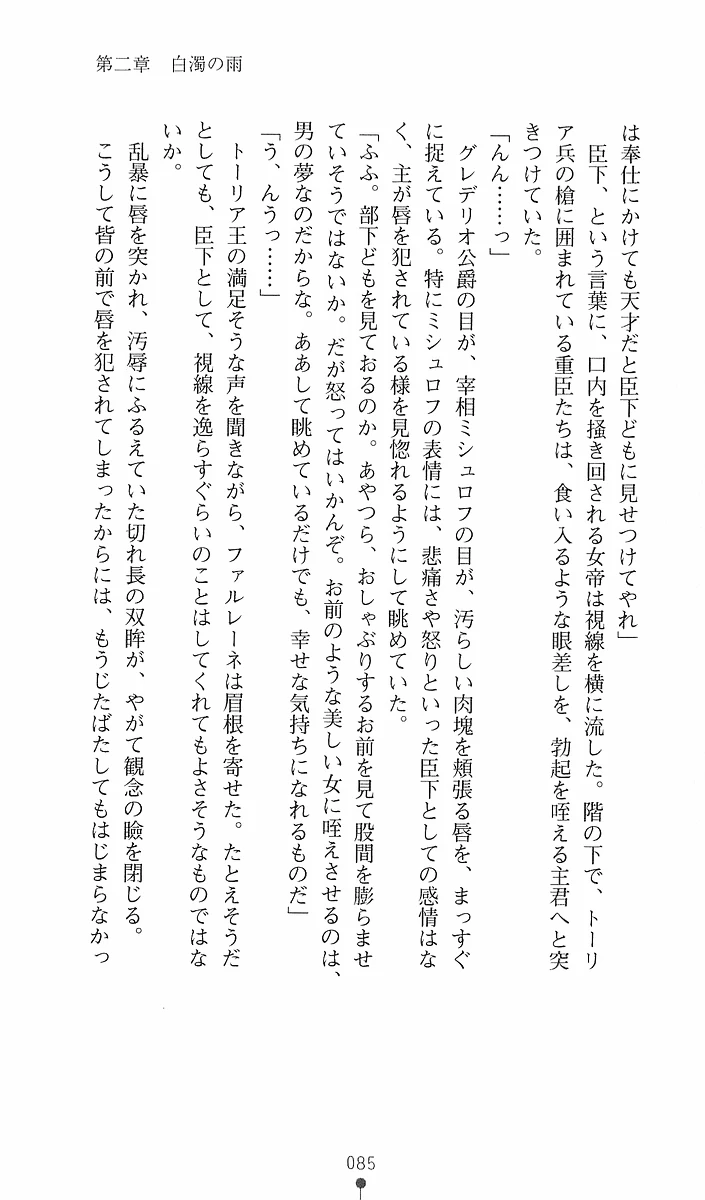 第二章　白濁の雨
は奉仕にかけても天才だと臣下どもに見せつけてやれ」
　臣下、という言葉に、口内を掻き回される女帝は視線を横に流した。階の下で、トーリ
ア兵の槍に囲まれている重臣たちは、食い入るような眼差しを、勃起を咥える主君へと突
きつけていた。
「んん……っ」
　グレデリオ公爵の目が、宰相ミシュロフの目が、汚らしい肉塊を頬張る唇を、まっすぐ
に捉えている。特にミシュロフの表情には、悲痛さや怒りといった臣下としての感情はな
く、主が唇を犯されている様を見惚れるようにして眺めていた。
「ふふ。部下どもを見ておるのか。あやつら、おしゃぶりするお前を見て股間を膨らませ
ていそうではないか。だが怒ってはいかんぞ。お前のような美しい女に咥えさせるのは、
男の夢なのだからな。ああして眺めているだけでも、幸せな気持ちになれるものだ」
「う、んうっ……」
　トーリア王の満足そうな声を聞きながら、ファルレーネは眉根を寄せた。たとえそうだ
としても、臣下として、視線を逸らすぐらいのことはしてくれてもよさそうなものではな
いか。
　乱暴に唇を突かれ、汚辱にふるえていた切れ長の双眸が、やがて観念の瞼を閉じる。
　こうして皆の前で唇を犯されてしまったからには、もうじたばたしてもはじまらなかっ
085